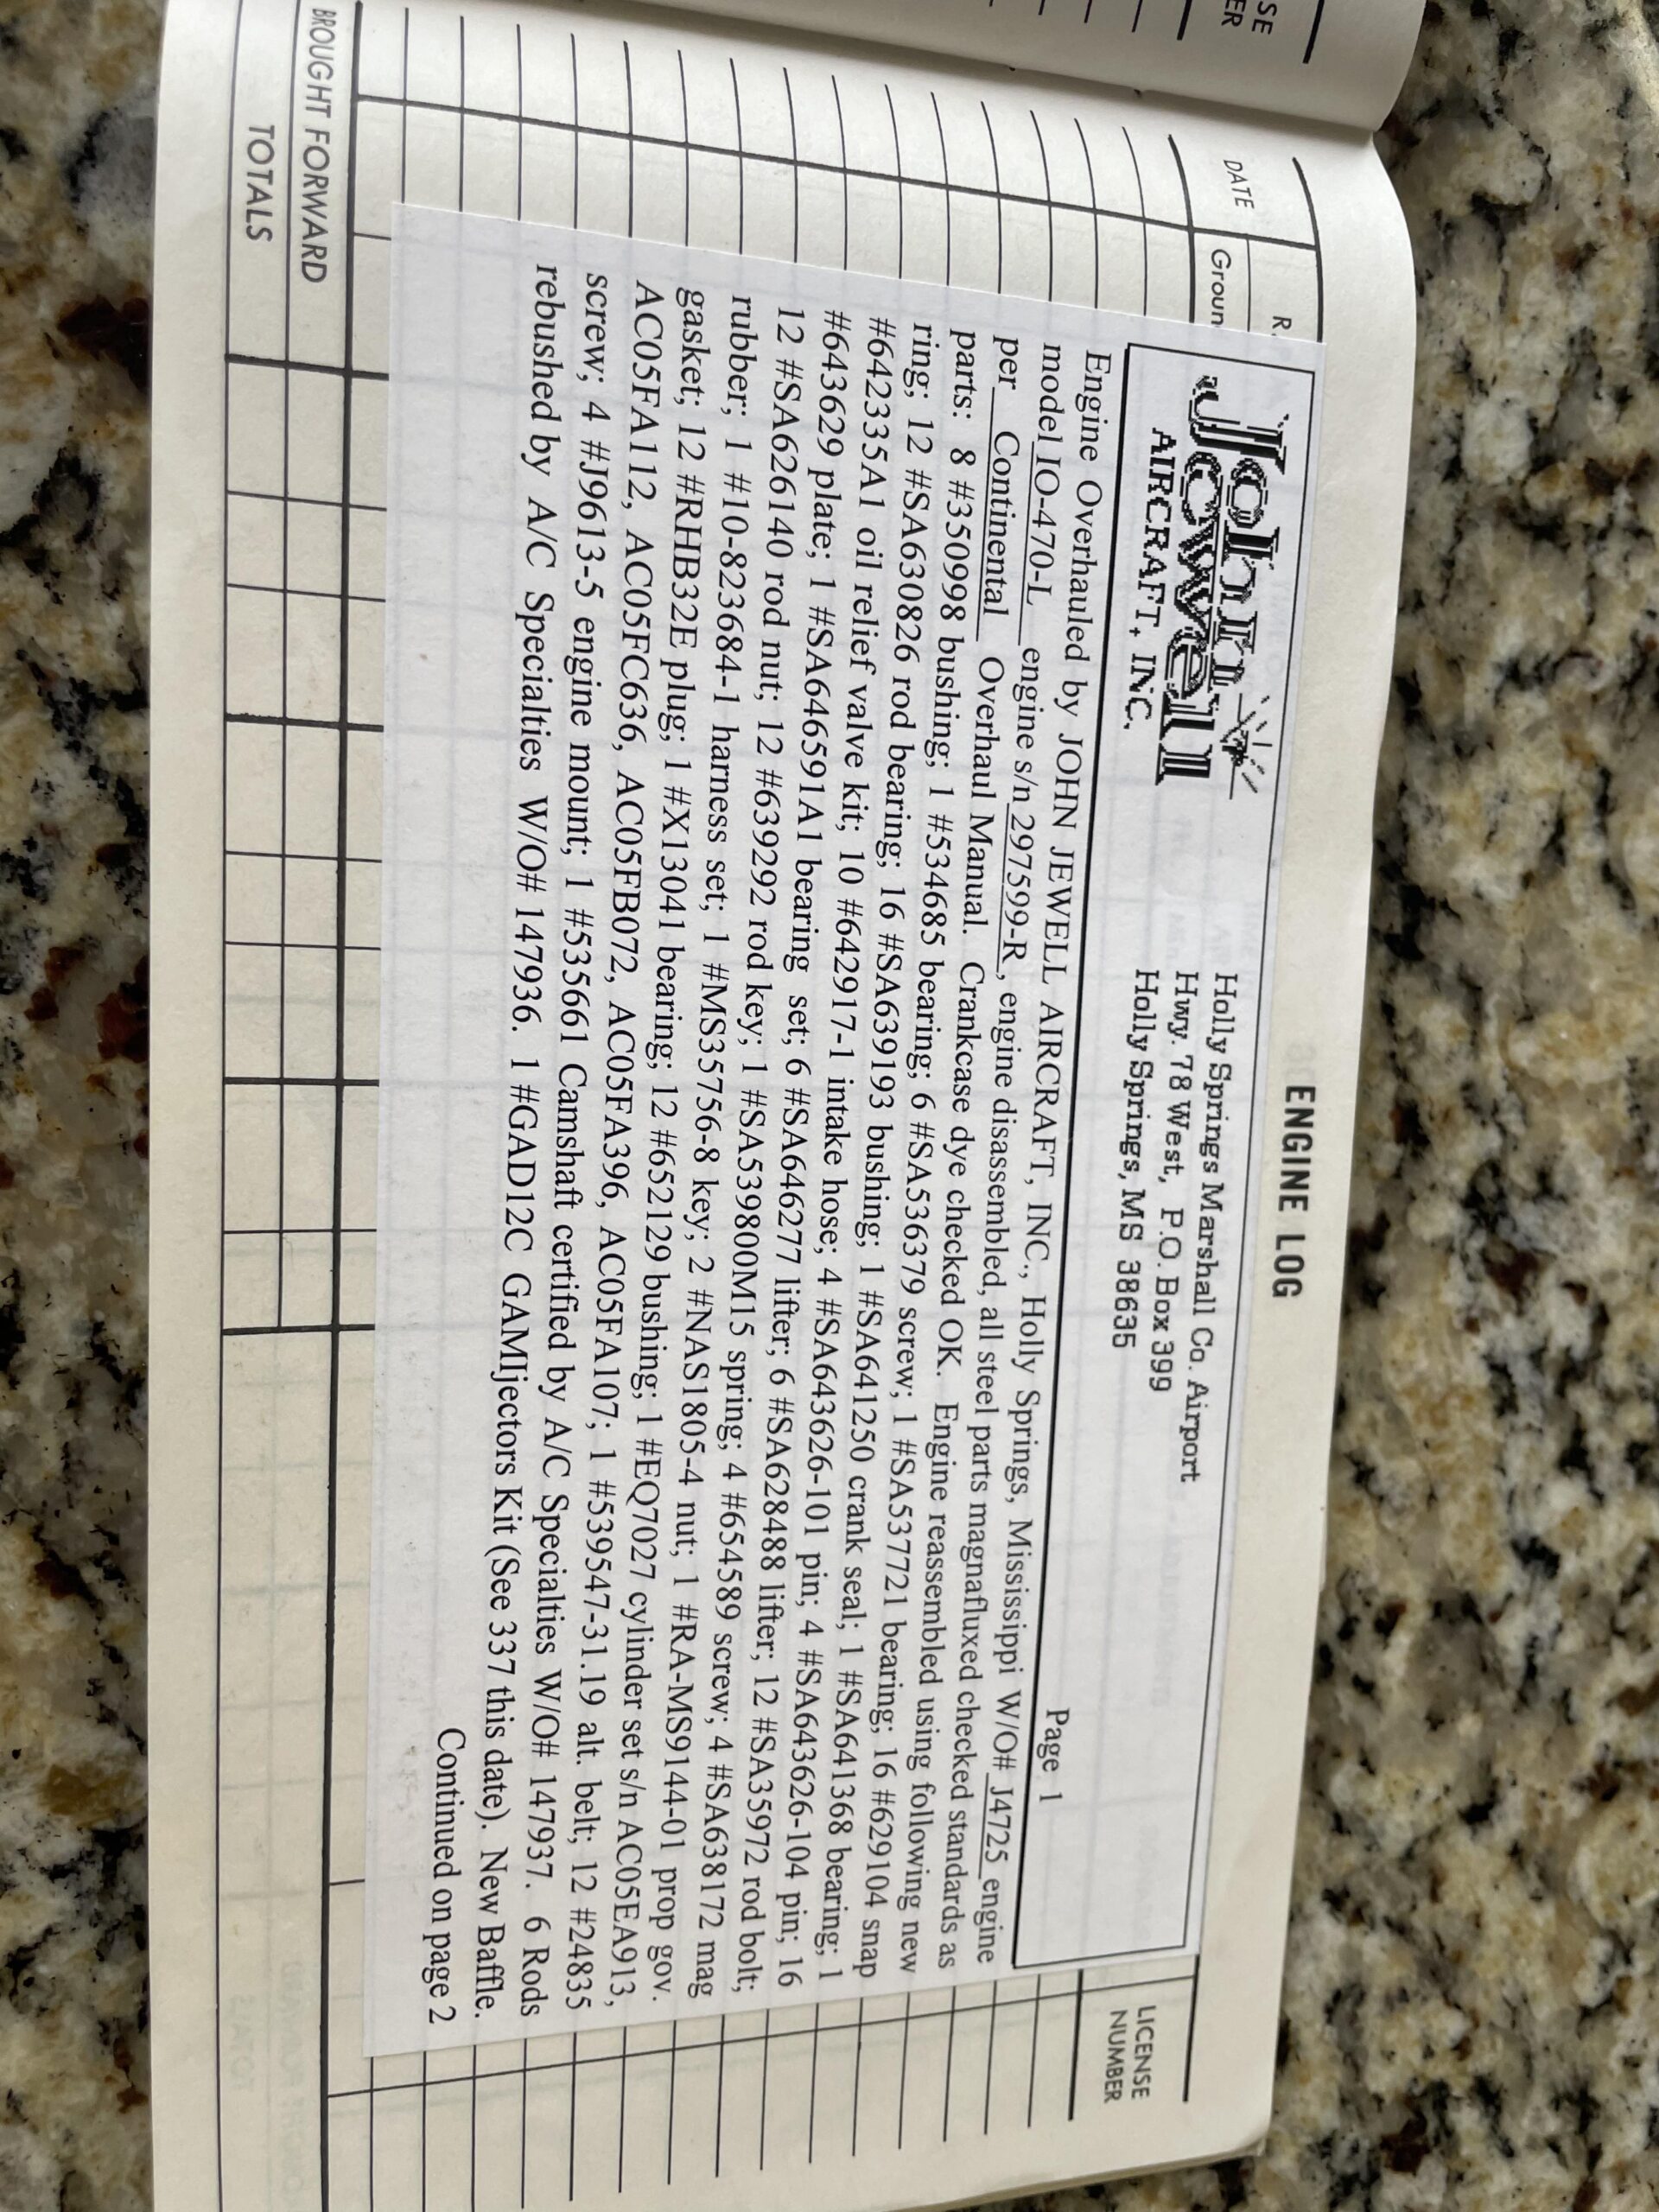 SE
ER
ENGINE LOG
DATE
R.
Groun
LICENSE
NUMBER
John
Jewell
AIRCRAFT, INC.
Holly Springs Marshall Co. Airport
Hwy. 78 West, P.O. Box 399
Holly Springs, MS 38635
Page 1
Engine Overhauled by JOHN JEWELL AIRCRAFT, INC., Holly Springs, Mississippi W/O# J4725 engine
model IO-470-L engine s/n 297599-R, engine disassembled, all steel parts magnafluxed checked standards as
per Continental Overhaul Manual. Crankcase dye checked OK. Engine reassembled using following new
parts: 8 #350998 bushing; 1 #534685 bearing; 6 #SA536379 screw; 1 #SA537721 bearing; 16 #629104 snap
ring; 12 #SA630826 rod bearing; 16 #SA639193 bushing; 1 #SA641250 crank seal; 1 #SA641368 bearing; 1
#642335A1 oil relief valve kit; 10 #642917-1 intake hose; 4 #SA643626-101 pin; 4 #SA643626-104 pin; 16
#643629 plate; 1 #SA646591A1 bearing set; 6 #SA646277 lifter; 6 #SA628488 lifter; 12 #SA35972 rod bolt;
12 #SA626140 rod nut; 12 #639292 rod key; 1 #SA539800M15 spring; 4 #654589 screw; 4 #SA638172 mag
rubber; 1 #10-823684-1 harness set; 1 #MS35756-8 key; 2 #NAS1805-4 nut; 1 #RA-MS9144-01 prop gov.
gasket; 12 #RHB32E plug; 1 #X13041 bearing; 12 #652129 bushing; 1 #EQ7027 cylinder set s/n AC05EA913,
AC05FA112, AC05FC636, AC05FB072, AC05FA396, AC05FA107; 1 #539547-31.19 alt. belt; 12 #24835
screw; 4 #J9613-5 engine mount; 1 #535661 Camshaft certified by A/C Specialties W/O# 147937. 6 Rods
rebushed by A/C Specialties W/O# 147936. 1 #GAD12C GAMIjectors Kit (See 337 this date). New Baffle.
Continued on page 2
BROUGHT FORWARD
TOTALS